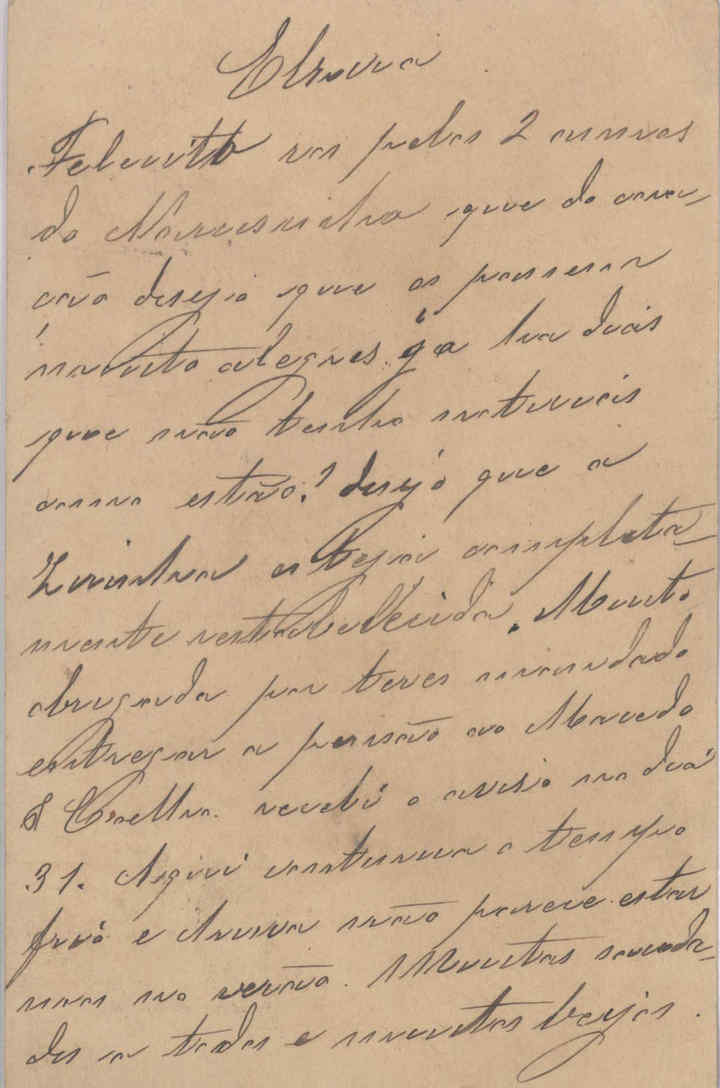 Elzira
Felicito vos pelos 2 annos
da Mariasinha que do cora-
ção desejo que os passem
muito alegres. ja ha dias
que não tenho noticias
como estão? desejo que a
Zizinha esteja completa-
mente restabellecida. Muito
obrigada por teres mandado
entregar a pensão ao Macedo
& Coelho. recebi o aviso no dia
31. Aqui continua o tempo
frio e chuva não parece estar
mos no verão. Muitas sauda-
des a todos e muitos beijos.